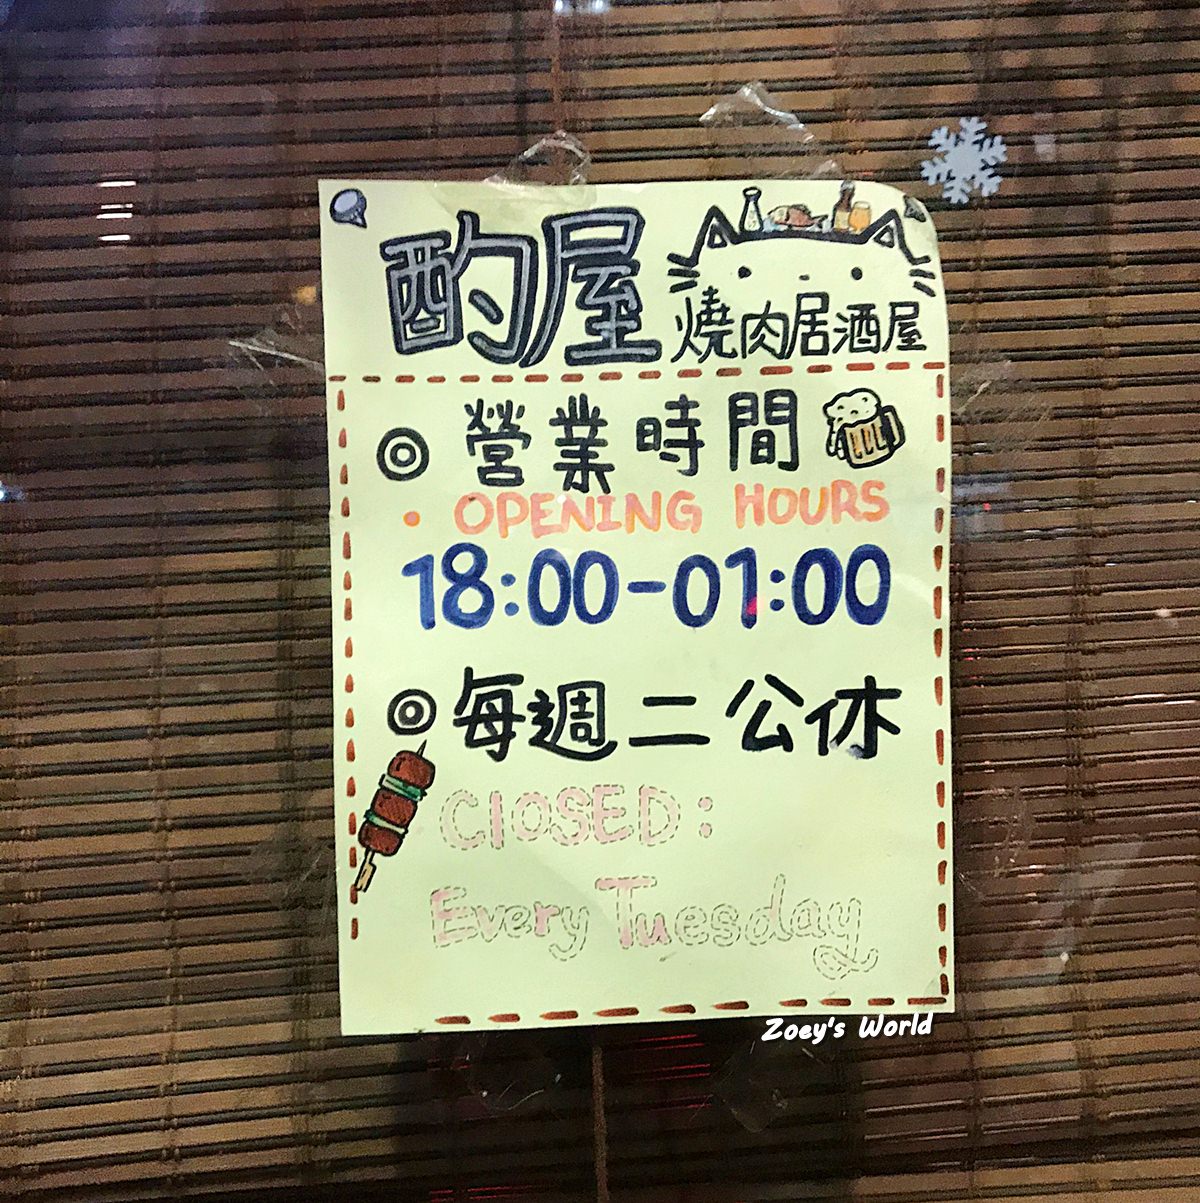 酌屋
燒肉居酒屋
◎ 營業時間
• OPENING HOURS
18:00-01:00
◎ 每週二公休
ClOSED:
Every Tuesday
Zoey's World